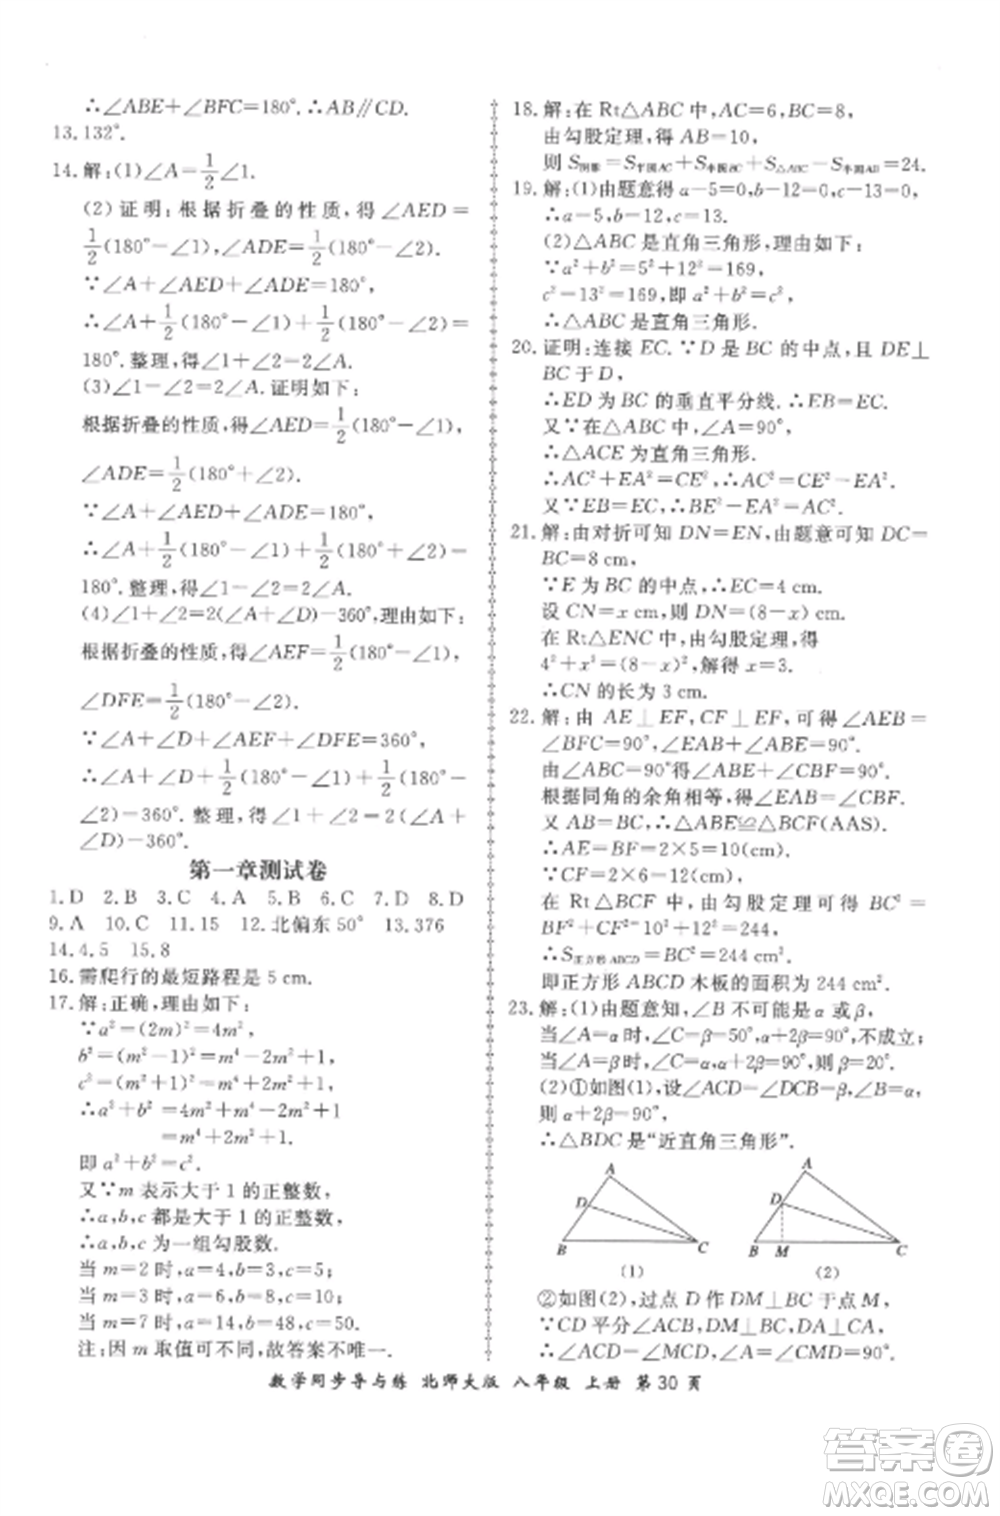 ∴∠ABE+∠BFC=180°.∴AB∥CD.
13.132°.
14.解:(1)∠A=1/2∠1.
(2)证明:根据折叠的性质,得∠AED=
1/2(180°-∠1),∠ADE=1/2(180°-∠2).
∵∠A+∠AED+∠ADE=180°,
∴∠A+1/2(180°-∠1)+1/2(180°-∠2)=
180°.整理,得∠1+∠2=2∠A.
(3)∠1-∠2=2∠A.证明如下:
根据折叠的性质,得∠AED=1/2(180°-∠1),
∠ADE=1/2(180°+∠2).
∵∠A+∠AED+∠ADE=180°,
∴∠A+1/2(180°-∠1)+1/2(180°+∠2)=
180°.整理,得∠1-∠2=2∠A.
(4)∠1+∠2=2(∠A+∠D)-360°.理由如下:
根据折叠的性质,得∠AEF=1/2(180°-∠1),
∠DFE=1/2(180°-∠2).
∵∠A+∠D+∠AEF+∠DFE=360°,
∴∠A+∠D+1/2(180°-∠1)+1/2(180°-
∠2)=360°.整理,得∠1+∠2=2(∠A+
∠D)-360°.
第一章测试卷
1.D 2.B 3.C 4.A 5.B 6.C 7.D 8.D
9.A 10.C 11.15 12.北偏东50° 13.376
14.4.5 15.8
16.需爬行的最短路程是5 cm.
17.解:正确,理由如下:
∵a²=(2m)²=4m²,
b²=(m²-1)²=m⁴-2m²+1,
c²=(m²+1)²=m⁴+2m²+1,
∴a²+b²=4m²+m⁴-2m²+1
=m⁴+2m²+1.
即a²+b²=c².
又∵m表示大于1的正整数,
∴a,b,c都是大于1的正整数,
∴a,b,c为一组勾股数.
当m=2时,a=4,b=3,c=5;
当m=3时,a=6,b=8,c=10;
当m=7时,a=14,b=48,c=50.
注:因m取值可不同,故答案不唯一.
18.解:在Rt△ABC中,AC=6,BC=8,
由勾股定理,得AB=10,
则S阴影=S半圆AC+S半圆BC+S△ABC-S半圆AB=24.
19.解:(1)由题意得a-5=0,b-12=0,c-13=0,
∴a=5,b=12,c=13.
(2)△ABC是直角三角形,理由如下:
∵a²+b²=5²+12²=169,
c²=13²=169,即a²+b²=c²,
∴△ABC是直角三角形.
20.证明:连接EC.∵D是BC的中点,且DE⊥
BC于D,
∴ED为BC的垂直平分线.∴EB=EC.
又∵在△ABC中,∠A=90°,
∴△ACE为直角三角形.
∴AC²+EA²=CE².∴AC²=CE²-EA².
又∵EB=EC,∴BE²-EA²=AC².
21.解:由对折可知DN=EN,由题意可知DC=
BC=8 cm,
∵E为BC的中点,∴EC=4 cm.
设CN=x cm,则DN=(8-x) cm,
在Rt△ENC中,由勾股定理,得
4²+x²=(8-x)²,解得x=3.
∴CN的长为3 cm.
22.解:由AE⊥EF,CF⊥EF,可得∠AEB=
∠BFC=90°,∠EAB+∠ABE=90°.
由∠ABC=90°得∠ABE+∠CBF=90°.
根据同角的余角相等,得∠EAB=∠CBF.
又AB=BC,∴△ABE≌△BCF(AAS).
∴AE=BF=2×5=10(cm),
∵CF=2×6=12(cm).
在Rt△BCF中,由勾股定理可得BC²=
BF²+CF²=10²+12²=244,
∴S正方形ABCD=BC²=244 cm²,
即正方形ABCD木板的面积为244 cm².
23.解:(1)由题意知,∠B不可能是α或β,
当∠A=α时,∠C=β=50°,α+2β=90°,不成立;
当∠A=β时,∠C=α,α+2β=90°,则β=20°.
(2)①如图(1),设∠ACD=∠DCB=β,∠B=α,
则α+2β=90°.
∴△BDC是“近直角三角形”.
A
D
B
C
(1)
A
D
B
M
C
(2)
②如图(2),过点D作DM⊥BC于点M,
∵CD平分∠ACB,DM⊥BC,DA⊥CA,
数学同步导与练 北师大版 八年级 上册 第30页
答案卷
MXQE.COM